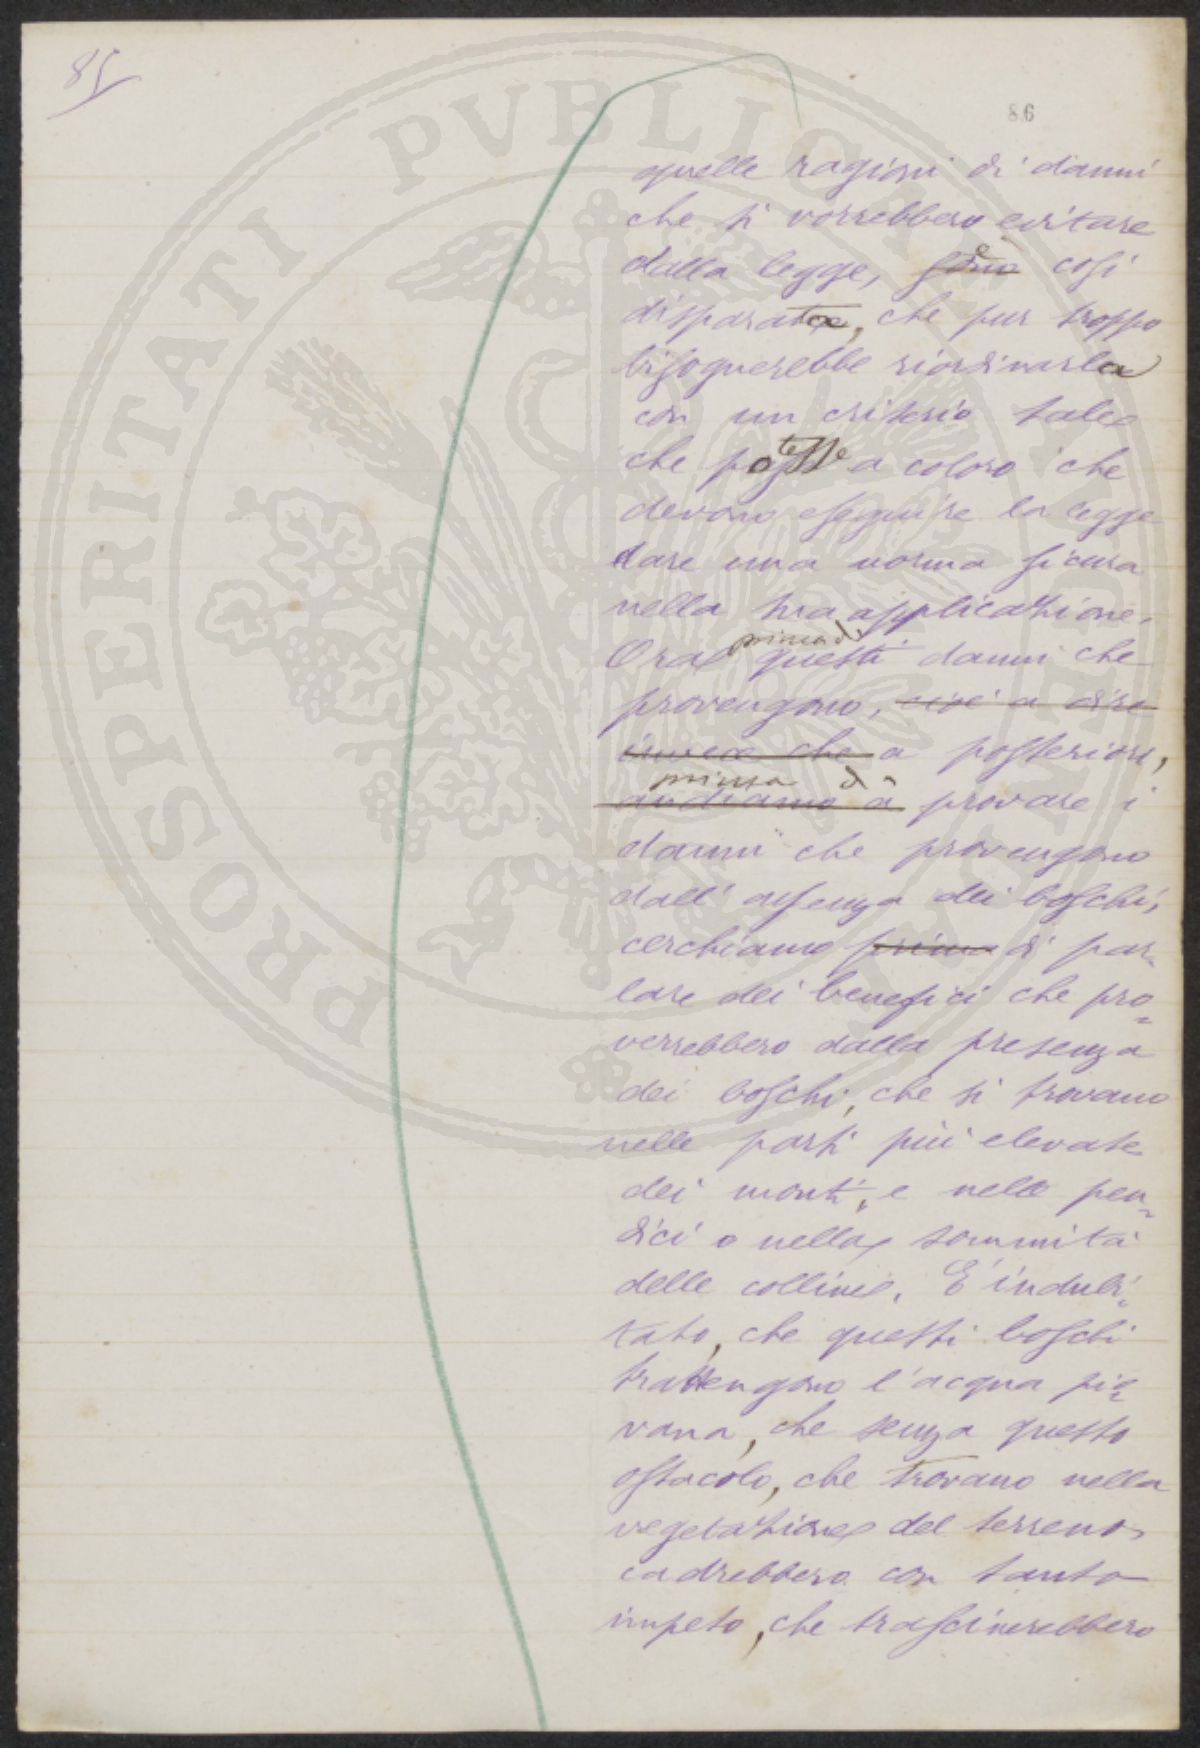 85
86
quelle ragioni di danni
che si vorrebbero evitare
dalla legge, sono è così
disparate, che pur troppo
bisognerebbe riordinarla
con un criterio tale
che potesse a coloro che
devono eseguire la legge
dare una norma sicura
nella sua applicazione.
prima di
Ora questi danni che
provengono, cioè a dire
invece che a posteriori,
prima di
andiamo a provare i
danni che provengono
dall'assenza dei boschi,
cerchiamo prima di par-
lare dei benefici che pro-
verrebbero dalla presenza
dei boschi, che si trovano
nelle parti più elevate
dei monti, e nelle pen-
dici o nella sommità
delle colline. E' indubi-
tato, che questi boschi
trattengono l'acqua pio-
vana, che senza questo
ostacolo, che trovano nella
vegetazione del terreno,
cadrebbero con tanto
impeto, che trascinerebbero
PROSPERITATI PVBLICAE